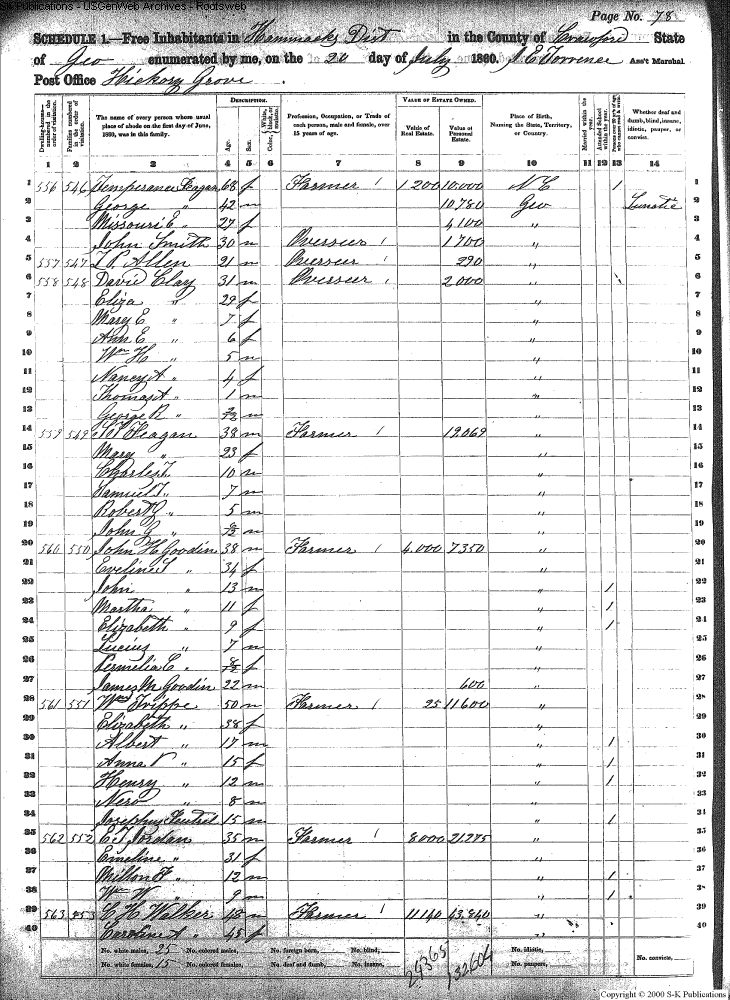 S-K Publications - USGenWeb Archives - Rootsweb
Page No. 78
SCHEDULE 1.—Free Inhabitants in Hammacks Dist in the County of Crawford State
of Geo enumerated by me, on the 20 day of July 1860. J E Torrence Ass't Marshal
Post Office Hickory Grove.
Dwelling-houses—numbered in the order of visitation.
Families numbered in the order of visitation.
The name of every person whose usual place of abode on the first day of June, 1860, was in this family.
DESCRIPTION.
Age.
Sex.
Color, White, black, or mulatto.
Profession, Occupation, or Trade of each person, male and female, over 15 years of age.
VALUE OF ESTATE OWNED.
Value of Real Estate.
Value of Personal Estate.
Place of Birth, Naming the State, Territory, or Country.
Married within the year.
Attended School within the year.
Persons over 20 y'rs of age who cannot read & write.
Whether deaf and dumb, blind, insane, idiotic, pauper, or convict.
1 2 3 4 5 6 7 8 9 10 11 12 13 14
1 556 546 Temperance Feagan 68 f Farmer 1 1200 10.000 N C / 1
2 George " 42 m 10.780 Geo Lunatic 2
3 Missouri E " 27 f 4100 " 3
4 John Smith 30 m Overseer 1 1700 " 4
5 557 547 Allen 21 m Overseer 1 290 " 5
6 558 548 David Clay 31 m Overseer 1 2000 " 6
7 Eliza " 29 f " 7
8 Mary E " 7 f " 8
9 Ann E " 6 f " 9
10 Wm H " 5 m " 10
11 Nancy A " 4 f " 11
12 Thomas A " 1 m " 12
13 George R " m " 13
14 559 549 Feagan 38 m Farmer 1 19.069 " 14
15 Mary " 23 f " 15
16 Charles T 10 m " 16
17 Samuel T " 7 m " 17
18 Robert " 5 m " 18
19 John G " m " 19
20 560 550 John H Goodin 38 m Farmer 1 4.000 7350 " 20
21 Eveline " 34 f " 21
22 John " 13 m " / 22
23 Martha " 11 f " / 23
24 Elizabeth " 9 f " / 24
25 Lucius " 7 m " 25
26 Permelia C " f " 26
27 James M Goodin 22 m 600 " 27
28 561 551 Wm Trippe 50 m Farmer 1 25 11600 " 28
29 Elizabeth " 38 f " 29
30 Albert " 17 m " / 30
31 Anna V " 15 f " / 31
32 Henry " 12 m " / 32
33 Nero " 8 m " 33
34 Josephus 15 m " / 34
35 562 552 E T Jordan 35 m Farmer 1 8000 21.275 " 35
36 Emeline " 31 f " 36
37 Milton " 12 m " / 37
38 Wm W " 9 m " / 38
39 563 553 H H Walker 18 m Farmer 1 11140 43.840 " / 39
40 Caroline A " 45 f " 40
No. white males, 25 No. colored males, No. foreign born, No. blind, No. idiotic, No. convicts,
No. white females, 15 No. colored females, No. deaf and dumb, No. insane, 24365 132604 No. paupers,
Copyright © 2000 S-K Publications